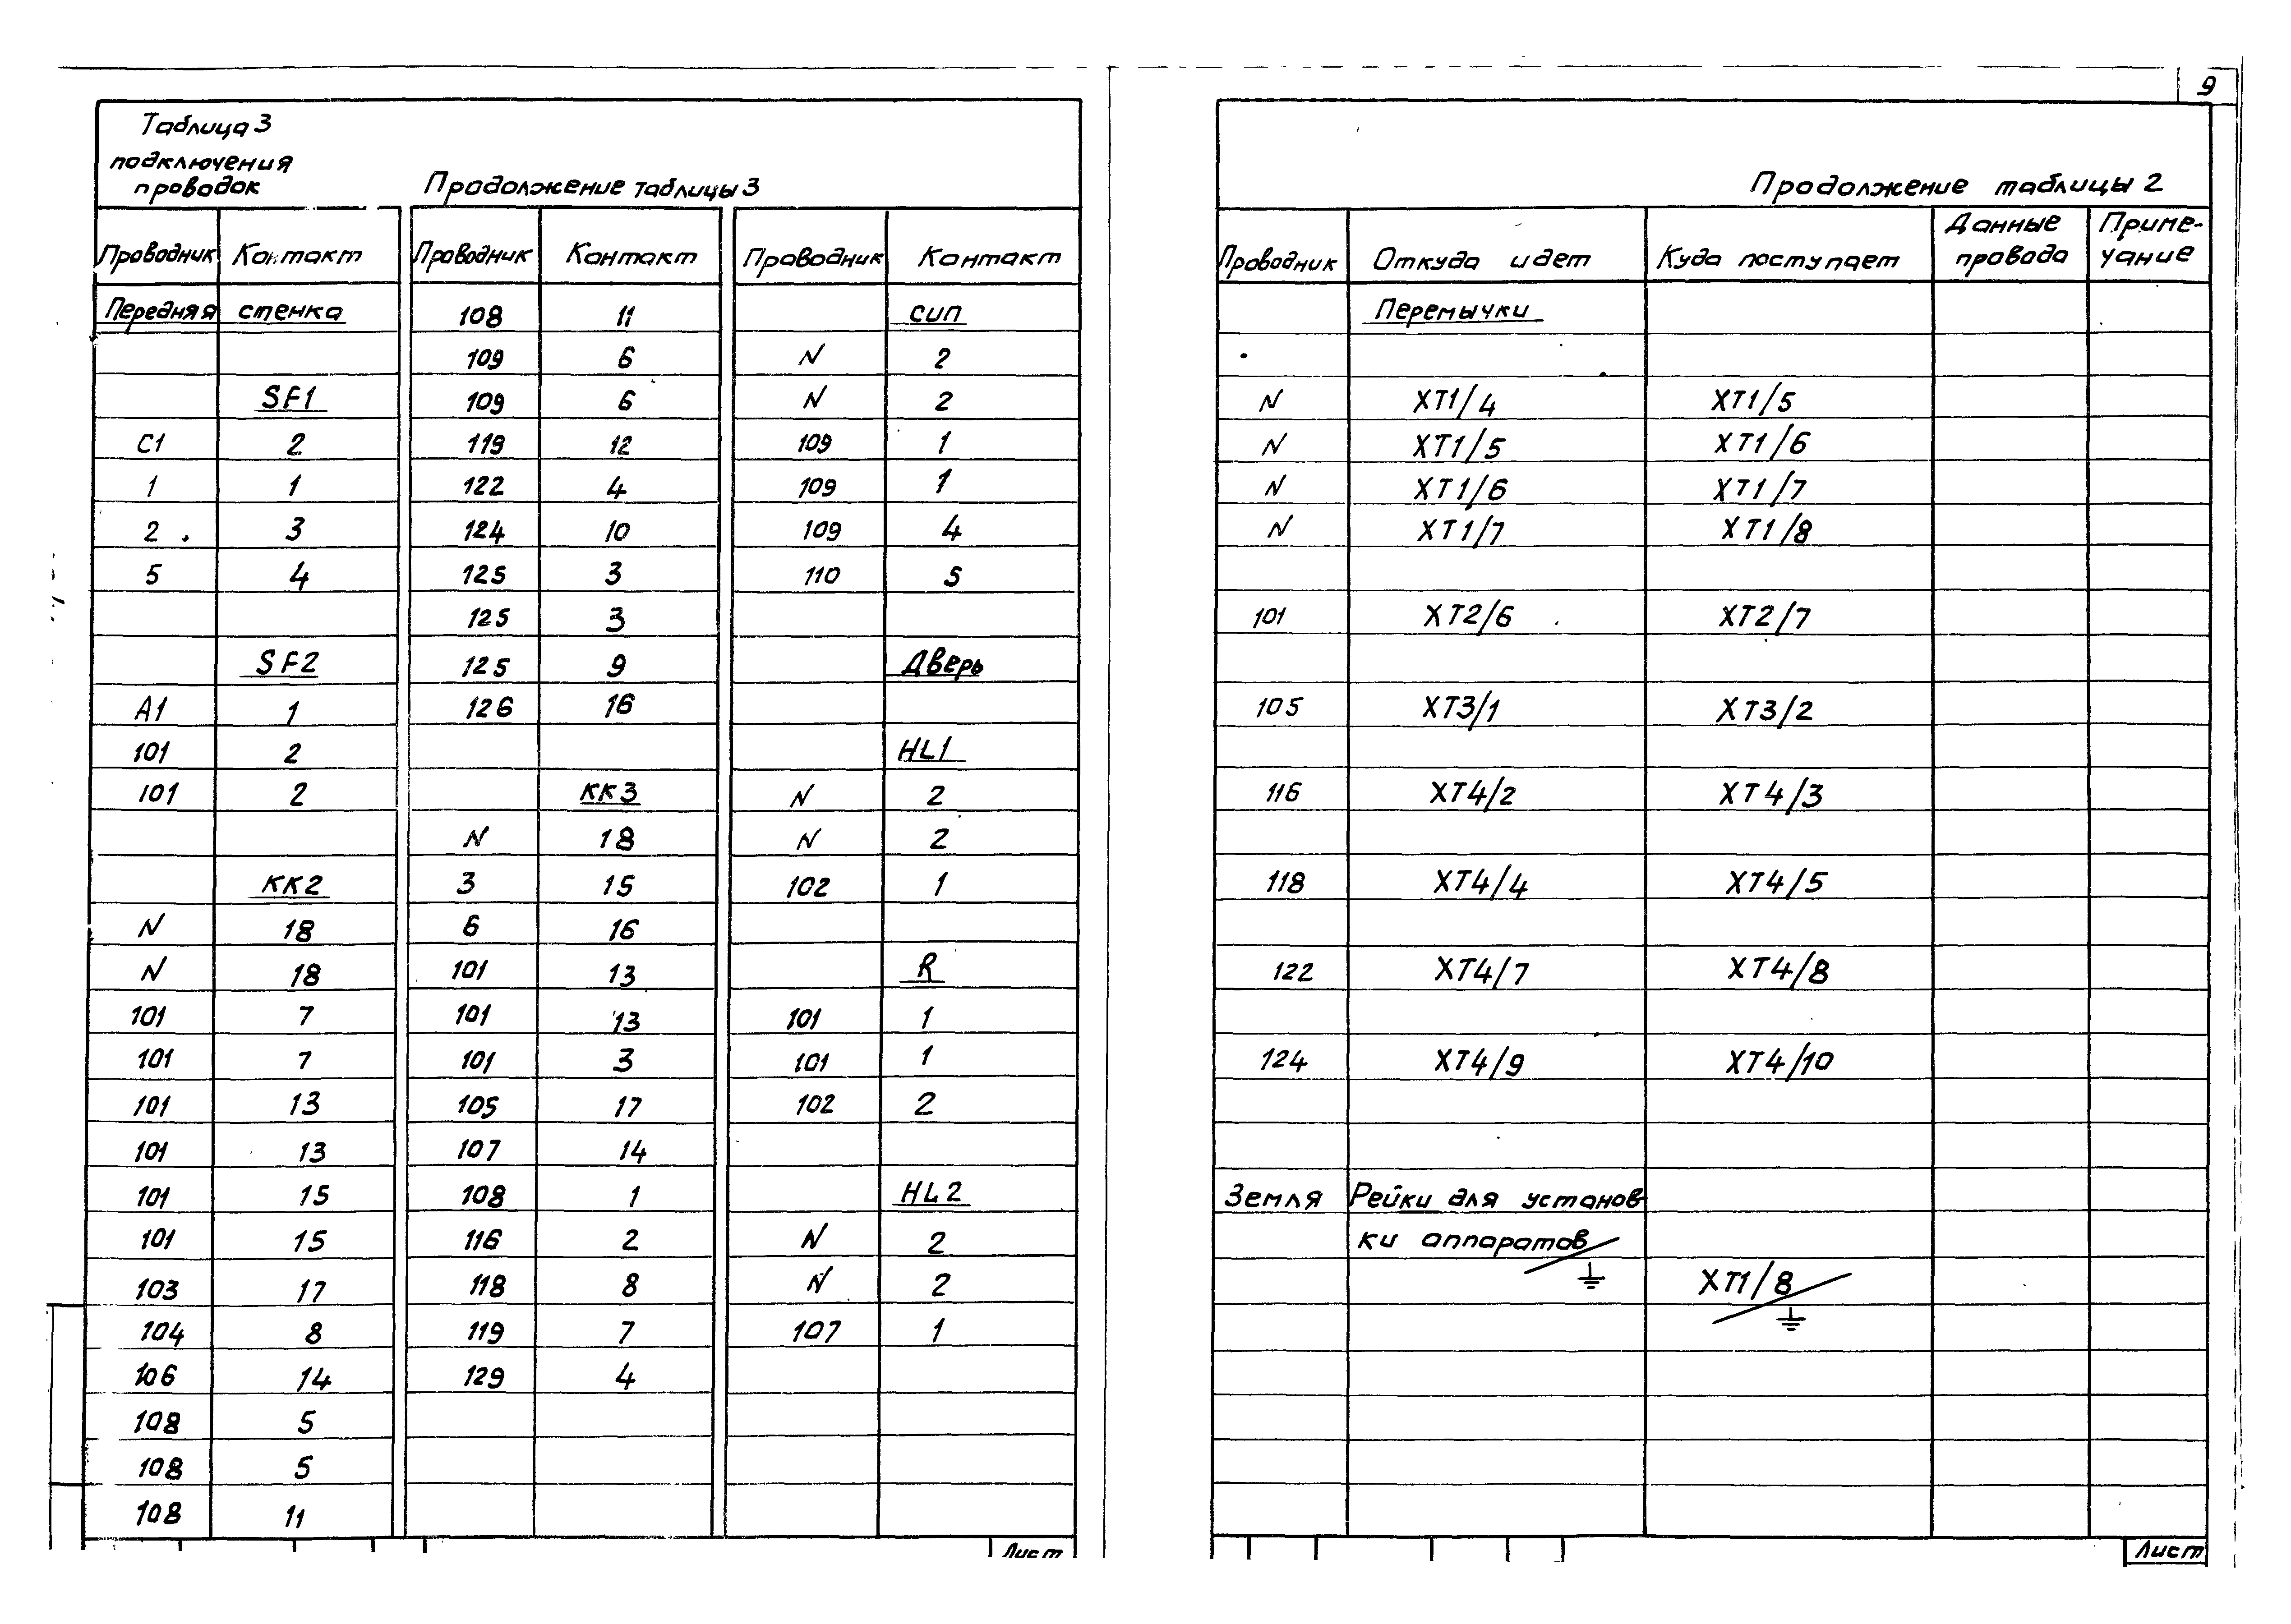 Таблица 3
подключения
проводок
Продолжение таблицы 3
Проводник Контакт Проводник Контакт Проводник Контакт
Передняя стенка 108 11 СИП
109 6 N 2
SF1 109 6 N 2
C1 2 119 12 109 1
1 1 122 4 109 1
2 3 124 10 109 4
5 4 125 3 110 5
125 3
SF2 125 9 Дверь
A1 1 126 16
101 2 HL1
101 2 KK3 N 2
N 18 N 2
KK2 3 15 102 1
N 18 6 16
N 18 101 13 R
101 7 101 13 101 1
101 7 101 3 101 1
101 13 105 17 102 2
101 13 107 14
101 15 108 1 HL2
101 15 116 2 N 2
103 17 118 8 N 2
104 8 119 7 107 1
106 14 129 4
108 5
108 5
108 11
Лист
9
Продолжение таблицы 2
Проводник Откуда идет Куда поступает Данные провода Приме-
чание
Перемычки
N XT1/4 XT1/5
N XT1/5 XT1/6
N XT1/6 XT1/7
N XT1/7 XT1/8
101 XT2/6 XT2/7
105 XT3/1 XT3/2
116 XT4/2 XT4/3
118 XT4/4 XT4/5
122 XT4/7 XT4/8
124 XT4/9 XT4/10
Земля Рейки для установ-
ки аппаратов
XT1/8
Лист